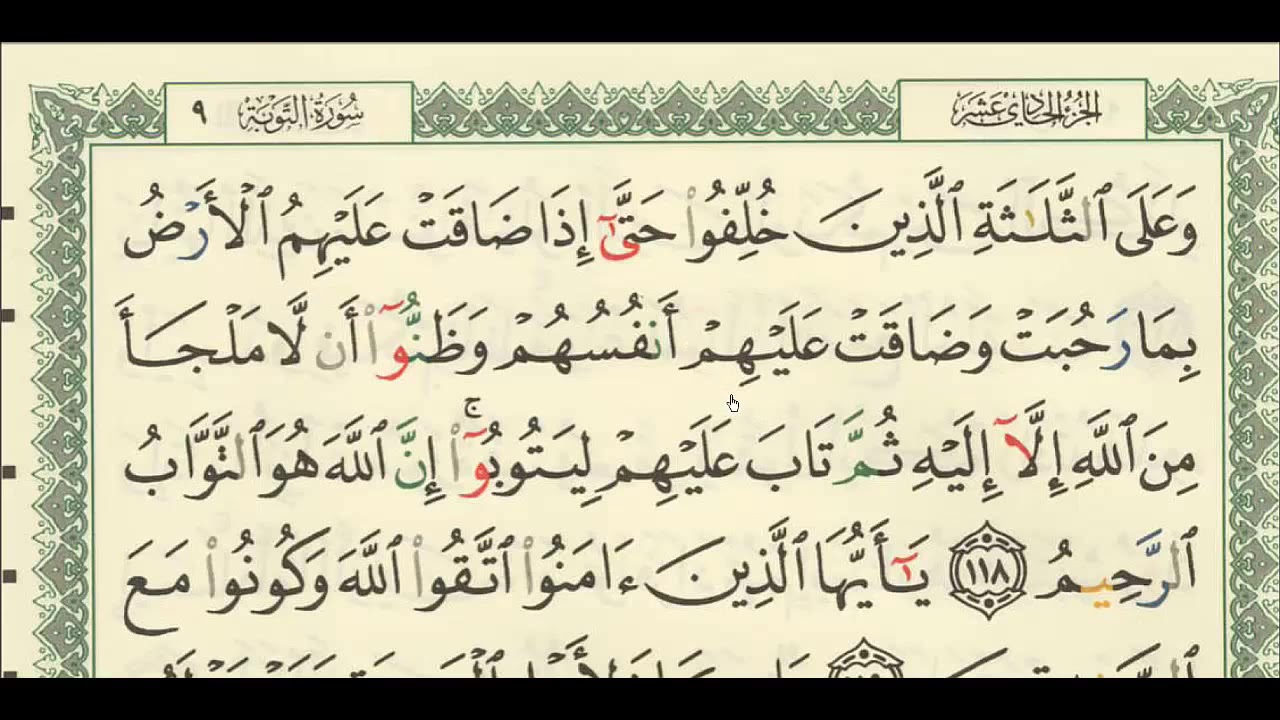 الجزء الحادي عشر
سورة التوبة ٩
وَعَلَى ٱلثَّلَـٰثَةِ ٱلَّذِينَ خُلِّفُوا۟ حَتَّىٰٓ إِذَا ضَاقَتْ عَلَيْهِمُ ٱلْأَرْضُ
بِمَا رَحُبَتْ وَضَاقَتْ عَلَيْهِمْ أَنفُسُهُمْ وَظَنُّوٓا۟ أَن لَّا مَلْجَأَ
مِنَ ٱللَّهِ إِلَّآ إِلَيْهِ ثُمَّ تَابَ عَلَيْهِمْ لِيَتُوبُوٓا۟ ۚ إِنَّ ٱللَّهَ هُوَ ٱلتَّوَّابُ
ٱلرَّحِيمُ ١١٨ يَـٰٓأَيُّهَا ٱلَّذِينَ ءَامَنُوا۟ ٱتَّقُوا۟ ٱللَّهَ وَكُونُوا۟ مَعَ